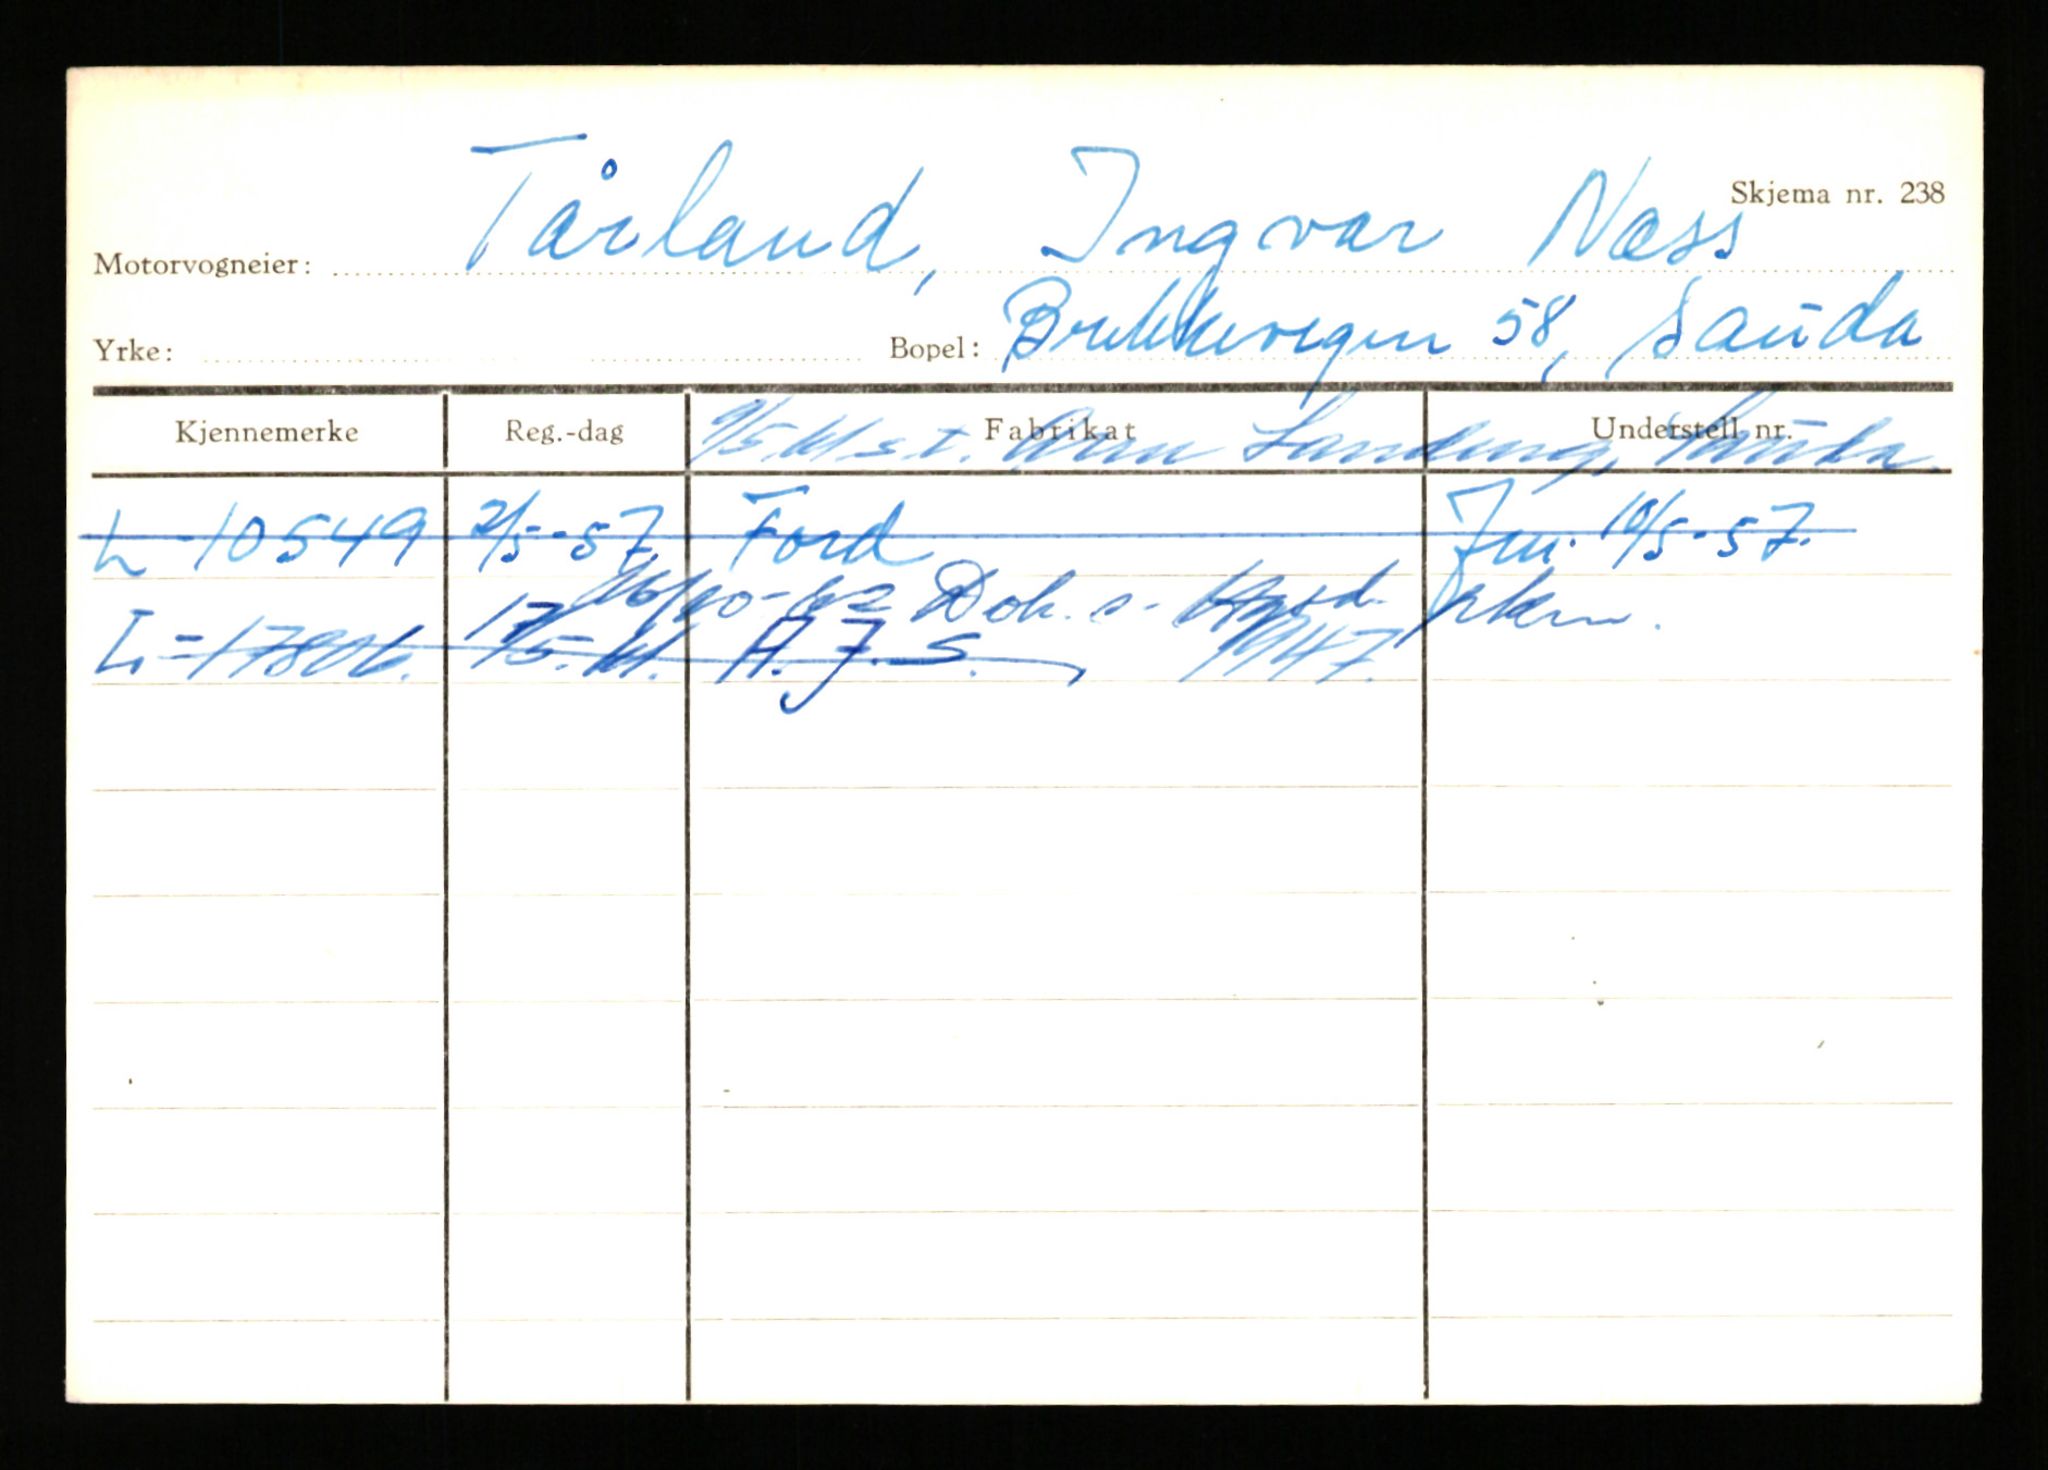 Skjema nr. 238
Motorvogneier: Tårland, Ingvar Næss
Yrke: Bopel: Brekkevegen 58, Sauda
Kjennemerke Reg.-dag Fabrikat Understell nr.
9/5.61 s.t. Sauda.
L-10549 2/5-57. Ford Inn. 10/5-57.
16/10-62 Dok. s.
L=17806. 17/5.61. A.J.S. 1947.